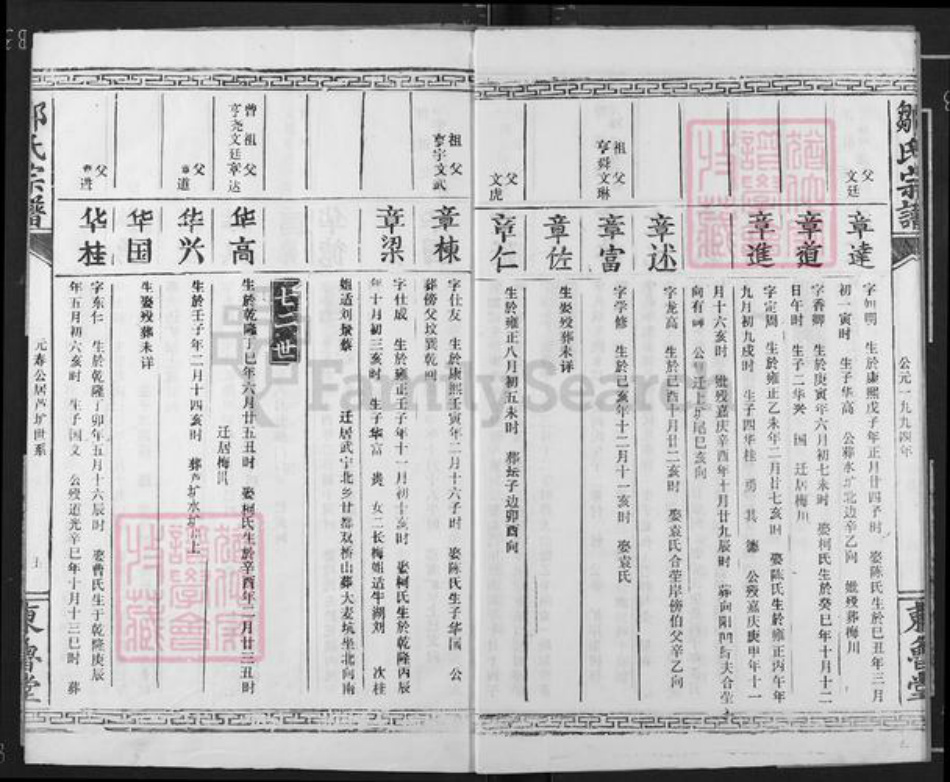 鄒氏宗譜
公元一九九四年
東魯堂
父
文廷
章達
字如明 生於康熙戊子年正月廿四予时 娶陈氏生於巳丑年三月
初一寅时 生子华高 公葬水圹北边辛乙向 㜑殁葬梅川
章道
字香卿 生於庚寅年六月初七未时 娶柯氏生於癸巳年十月十二
日午时 生子二华兴 国 迁居梅川
章進
字定周 生於雍正乙未年二月廿七亥时 娶陈氏生於雍正丙午年
九月初九戌时 生子四华桂 勇 其 德 公殁嘉庆庚申年十一
月十六亥时 㜑殁嘉庆辛酉年十月廿九辰时
章述
字龙高 生於巳酉十月廿二亥时 娶袁氏合茔岸傍伯父辛乙向
祖 父
亨舜文琳
章富
字学修 生於已亥年十二月十一亥时 娶袁氏
章佐
生娶殁葬未详
父
文虎
章仁
生於雍正八月初五未时 葬坛子边卯酉向
祖 父
亨宇文武
章棟
字仕友 生於康熙壬寅年二月十六子时 娶陈氏生子华國 公
葬傍父坟巽乾向
章梁
字仕成 生於雍正壬子年十一月初十亥时 娶柯氏生於乾隆丙辰
年十月初三亥时 生子华富 贵 女二长梅姐适牛湖刘 次桂
姐适刘景蔡 迁居武宁北乡廿都双桥山葬大麦坑坐北向南
七二世
曾 祖 父
亨尧文廷章达
华高
生於乾隆丁巳年六月廿五丑时 娶柯氏生於辛酉年二月廿三丑时
迁居梅川
父
章道
华兴
生於壬子年二月十四亥时 葬芦圹水圹上
华国
生娶殁葬未详
父
章进
华桂
字东仁 生於乾隆丁卯年五月十六辰时 娶曹氏生于乾隆庚辰
年五月初六亥时 生子国文 公殁道光辛巳年十月十三巳时 葬
邹氏宗譜
元寿公居芦圹世系
東魯堂
FamilySearch